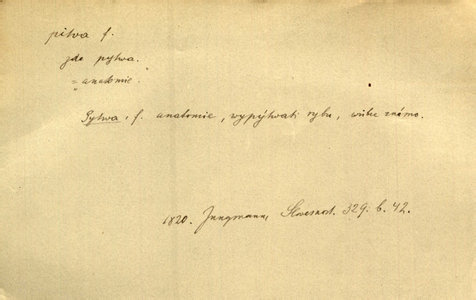 pitva f.
jde pytwa.
= anatomie.
Pytwa, f. anatomie, vypýtvati rybu, wůbec známo.
1820. Jungmann, Slovesnost. 329. b. 42.